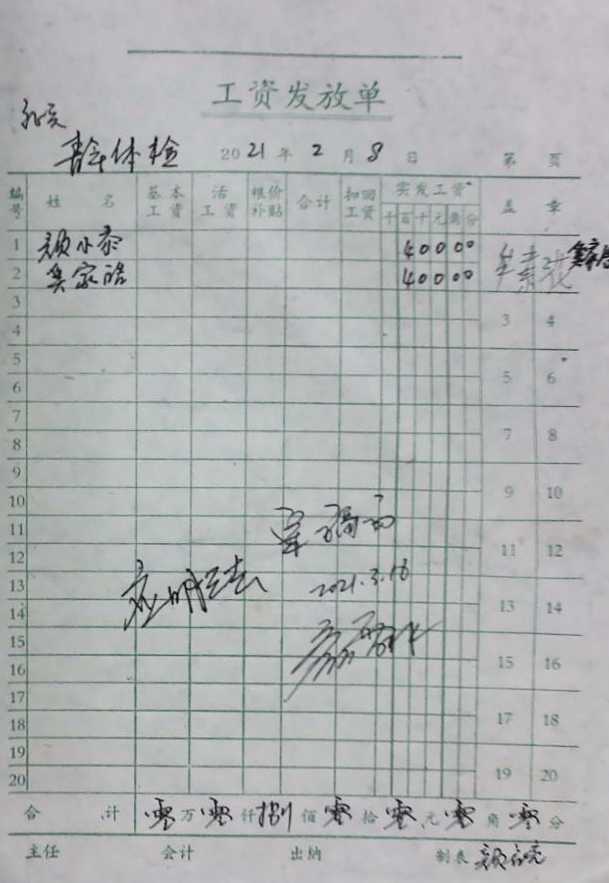 工资发放单
体检
2021年2月8日 第 页
编号 姓名 基本工资 活工资 粮价补贴 合计 扣回工资 实发工资 盖章
千 百 十 元 角 分
1 颜小泰 40000
2 吴家皓 40000
3 3 4
4
5 5 6
6
7 7 8
8
9 9 10
10
11 11 12
12
2021.3.16
13 13 14
14
15 15 16
16
17 17 18
18
19 19 20
20
合计 零万零仟捌佰零拾零元零角零分
主任 会计 出纳 制表